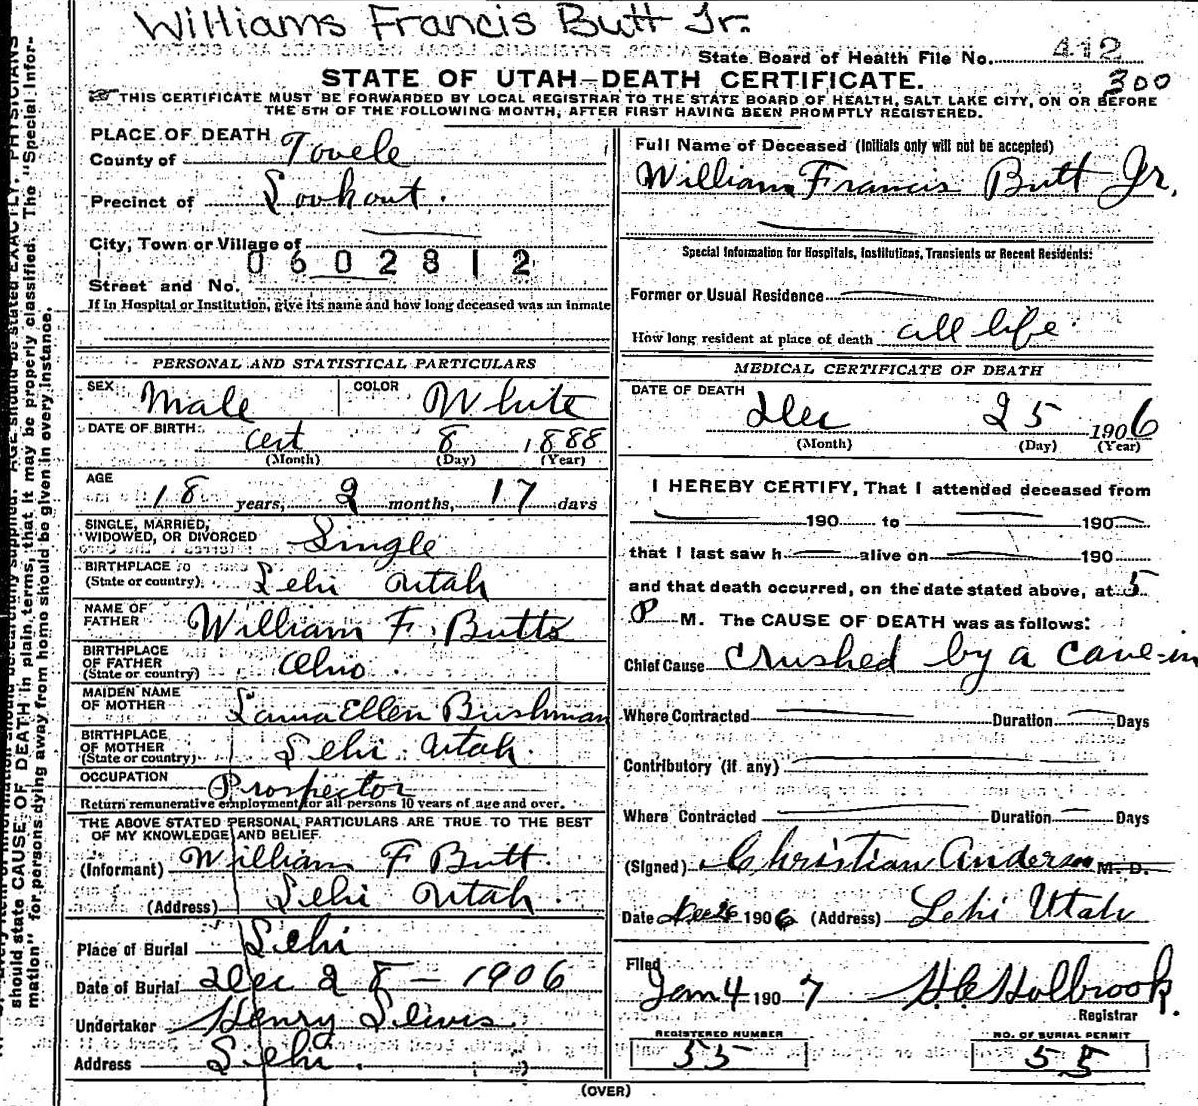 Williams Francis Butt Jr.
State Board of Health File No. 412
STATE OF UTAH—DEATH CERTIFICATE.
300
THIS CERTIFICATE MUST BE FORWARDED BY LOCAL REGISTRAR TO THE STATE BOARD OF HEALTH, SALT LAKE CITY, ON OR BEFORE
THE 5TH OF THE FOLLOWING MONTH, AFTER FIRST HAVING BEEN PROMPTLY REGISTERED.
PLACE OF DEATH
County of Tooele
Precinct of Lookout.
City, Town or Village of
0602812
Street and No.
If in Hospital or Institution, give its name and how long deceased was an inmate
PERSONAL AND STATISTICAL PARTICULARS
SEX Male COLOR White
DATE OF BIRTH: 8 1888
(Month) (Day) (Year)
AGE
18 years, 2 months, 17 days
SINGLE, MARRIED,
WIDOWED, OR DIVORCED Single
BIRTHPLACE
(State or country) Lehi Utah
NAME OF
FATHER William F. Butts
BIRTHPLACE
OF FATHER
(State or country) Ohio
MAIDEN NAME
OF MOTHER Laura Ellen Bushman
BIRTHPLACE
OF MOTHER
(State or country) Lehi Utah.
OCCUPATION Prospector
Return remunerative employment for all persons 10 years of age and over.
THE ABOVE STATED PERSONAL PARTICULARS ARE TRUE TO THE BEST
OF MY KNOWLEDGE AND BELIEF.
(Informant) William F Butt.
(Address) Lehi Utah.
Place of Burial Lehi
Date of Burial Dec 28 - 1906
Undertaker Henry Lewis.
Address Lehi.
Full Name of Deceased (Initials only will not be accepted)
William Francis Butt Jr.
Special Information for Hospitals, Institutions, Transients or Recent Residents:
Former or Usual Residence
How long resident at place of death all life
MEDICAL CERTIFICATE OF DEATH
DATE OF DEATH
Dec 25 1906
(Month) (Day) (Year)
I HEREBY CERTIFY, That I attended deceased from
190 to 190
that I last saw h alive on 190
and that death occurred, on the date stated above, at 5
P M. The CAUSE OF DEATH was as follows:
Chief Cause Crushed by a cave-in
Where Contracted Duration Days
Contributory (if any)
Where Contracted Duration Days
(Signed) Christian Anderson M. D.
Date Dec 26 1906 (Address) Lehi Utah
Filed
Jan 4 1907 H C Holbrook.
Registrar
REGISTERED NUMBER
55
NO. OF BURIAL PERMIT
55
(OVER)
should state CAUSE OF DEATH in plain terms, that it may be properly classified. The "Special Infor-
mation" for persons dying away from home should be given in every instance.